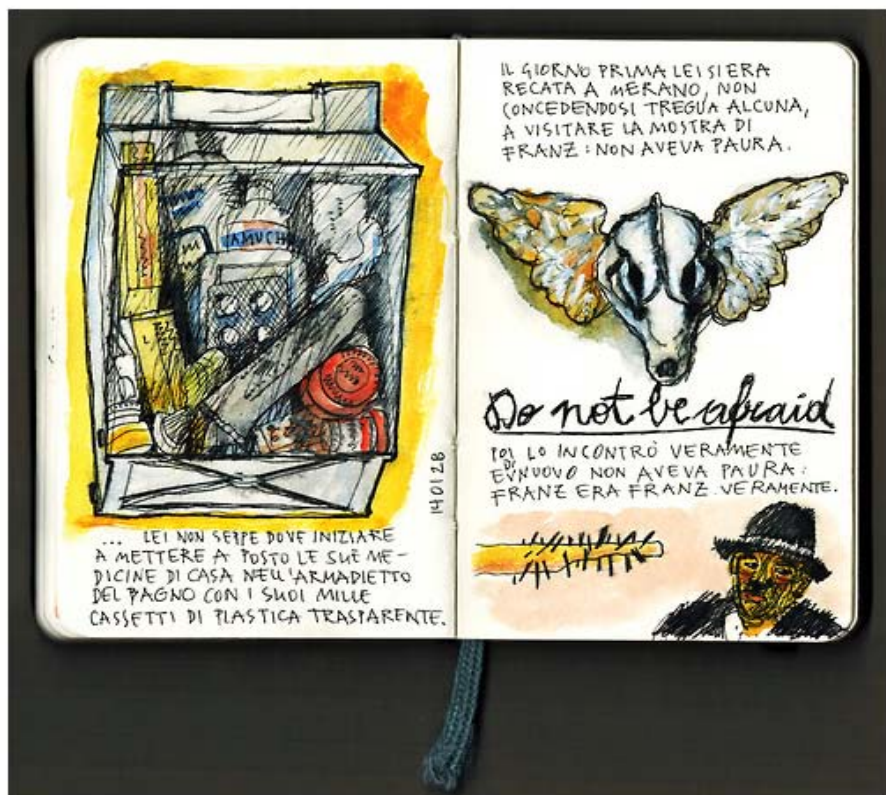 AMUCH
... LEI NON SEPPE DOVE INIZIARE
A METTERE A POSTO LE SUE ME-
DICINE DI CASA NELL'ARMADIETTO
DEL BAGNO CON I SUOI MILLE
CASSETTI DI PLASTICA TRASPARENTE.
140128
IL GIORNO PRIMA LEI SI ERA
RECATA A MERANO, NON
CONCEDENDOSI TREGUA ALCUNA,
A VISITARE LA MOSTRA DI
FRANZ: NON AVEVA PAURA.
Do not be afraid
POI LO INCONTRÒ VERAMENTE
E DI NUOVO NON AVEVA PAURA:
FRANZ ERA FRANZ. VERAMENTE.